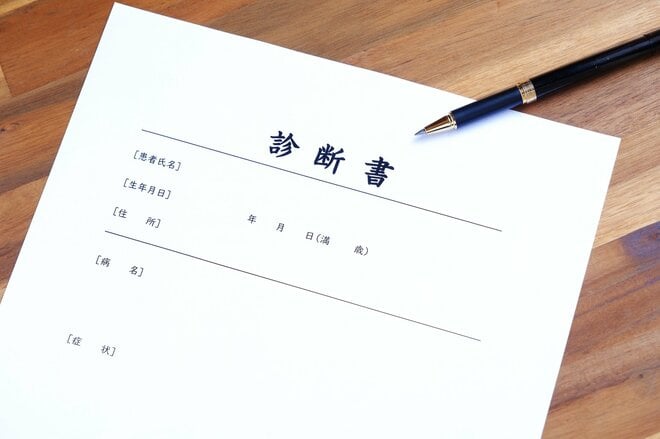 診断書
[患者氏名]
[生年月日] 年 月 日(満 歳)
[住 所]
[病 名]
[症 状]